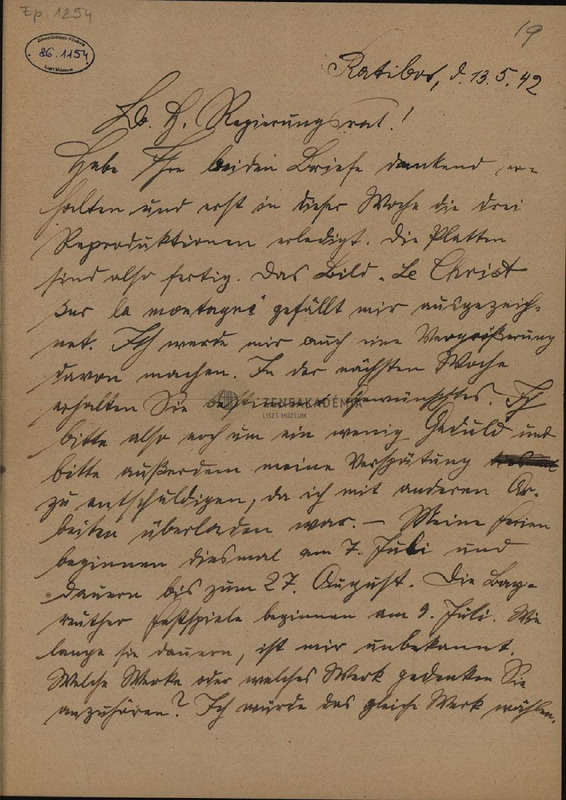 Ep. 1254
19
86.1154
LISZT MÚZEUM
Ratibor, d. 13.5.42
Lb. H. Regierungsrat!
Habe Ihre beiden Briefe dankend er-
halten und erst in dieser Woche die drei
Reproduktionen erledigt. Die Platten
sind also fertig. Das Bild „Le Christ
sur la montagne" gefällt mir ausgezeich-
net. Ich werde mir auch eine Vergrößerung
davon machen. In der nächsten Woche
erhalten Sie bestimmt Gewünschtes. Ich
ZENEAKADÉMIA
LISZT MÚZEUM
bitte also noch um ein wenig Geduld und
bitte außerdem meine Verspätung
zu entschuldigen, da ich mit anderen Ar-
beiten überladen war. — Meine Ferien
beginnen diesmal am 7. Juli und
dauern bis zum 27. August. Die Bay-
reuther Festspiele beginnen am 9. Juli. Wie
lange sie dauern, ist mir unbekannt.
Welche Werke oder welches Werk gedenken Sie
anzuhören? Ich würde das gleiche Werk wählen.